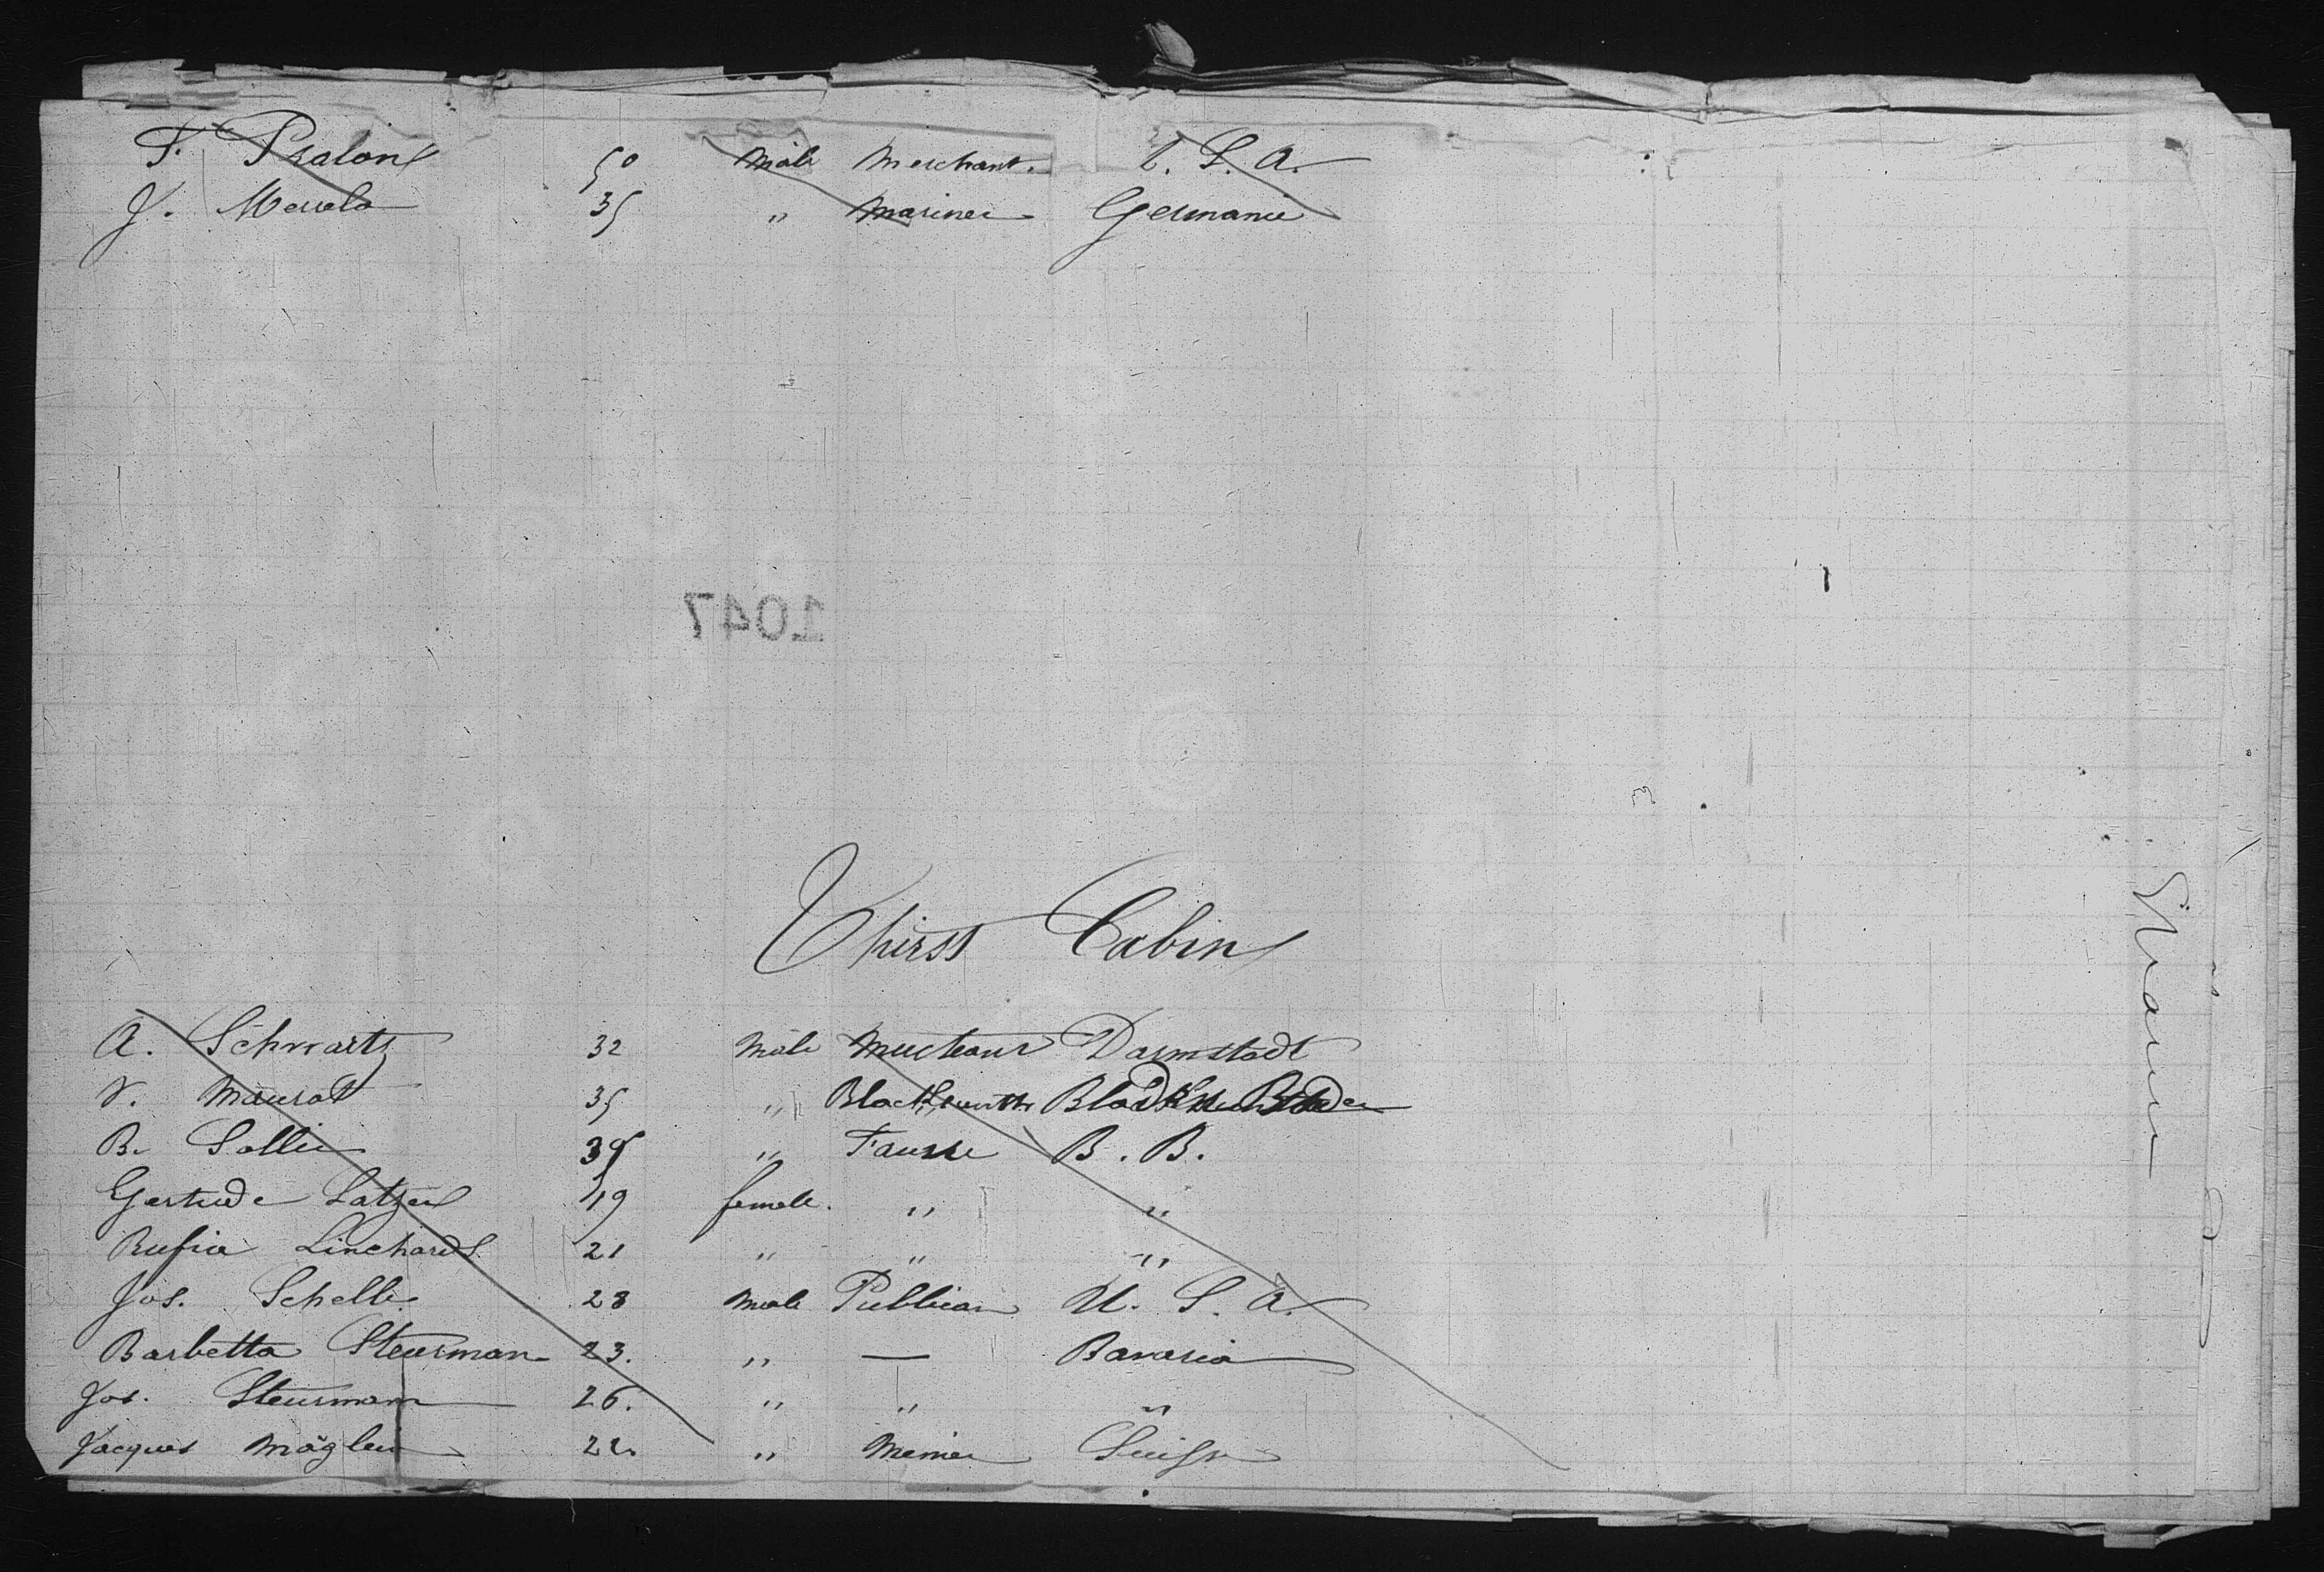 F. Pralon 50 Male Merchant. U. S. A.
J. Merrelo 35 " Mariner Germanie
1047
Thirst Cabin
A. Schwartz 32 Male Darmstadt
V. Maurat 35 " Blacksmith Baden
B. Sollie 39 " Fausse B. B.
Gertrude Latzen 19 female. " "
Rufia Linchard 21 " " "
Jos. Schelle 28 Male Publican U. S. A.
Barbetta Steurman 23. " — Bavaria
Jos. Steurman 26. " " "
Jacques Mäglen 22. " Menier Suisse